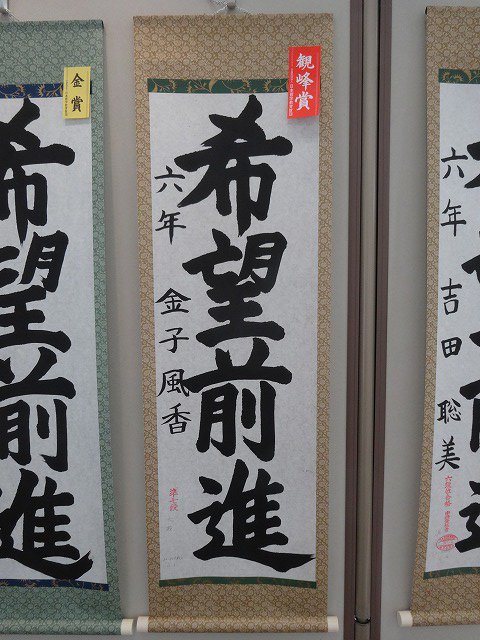 六年 吉田聡美
観峰賞
希望前進
六年 金子風香
準七段
金賞
希望前進